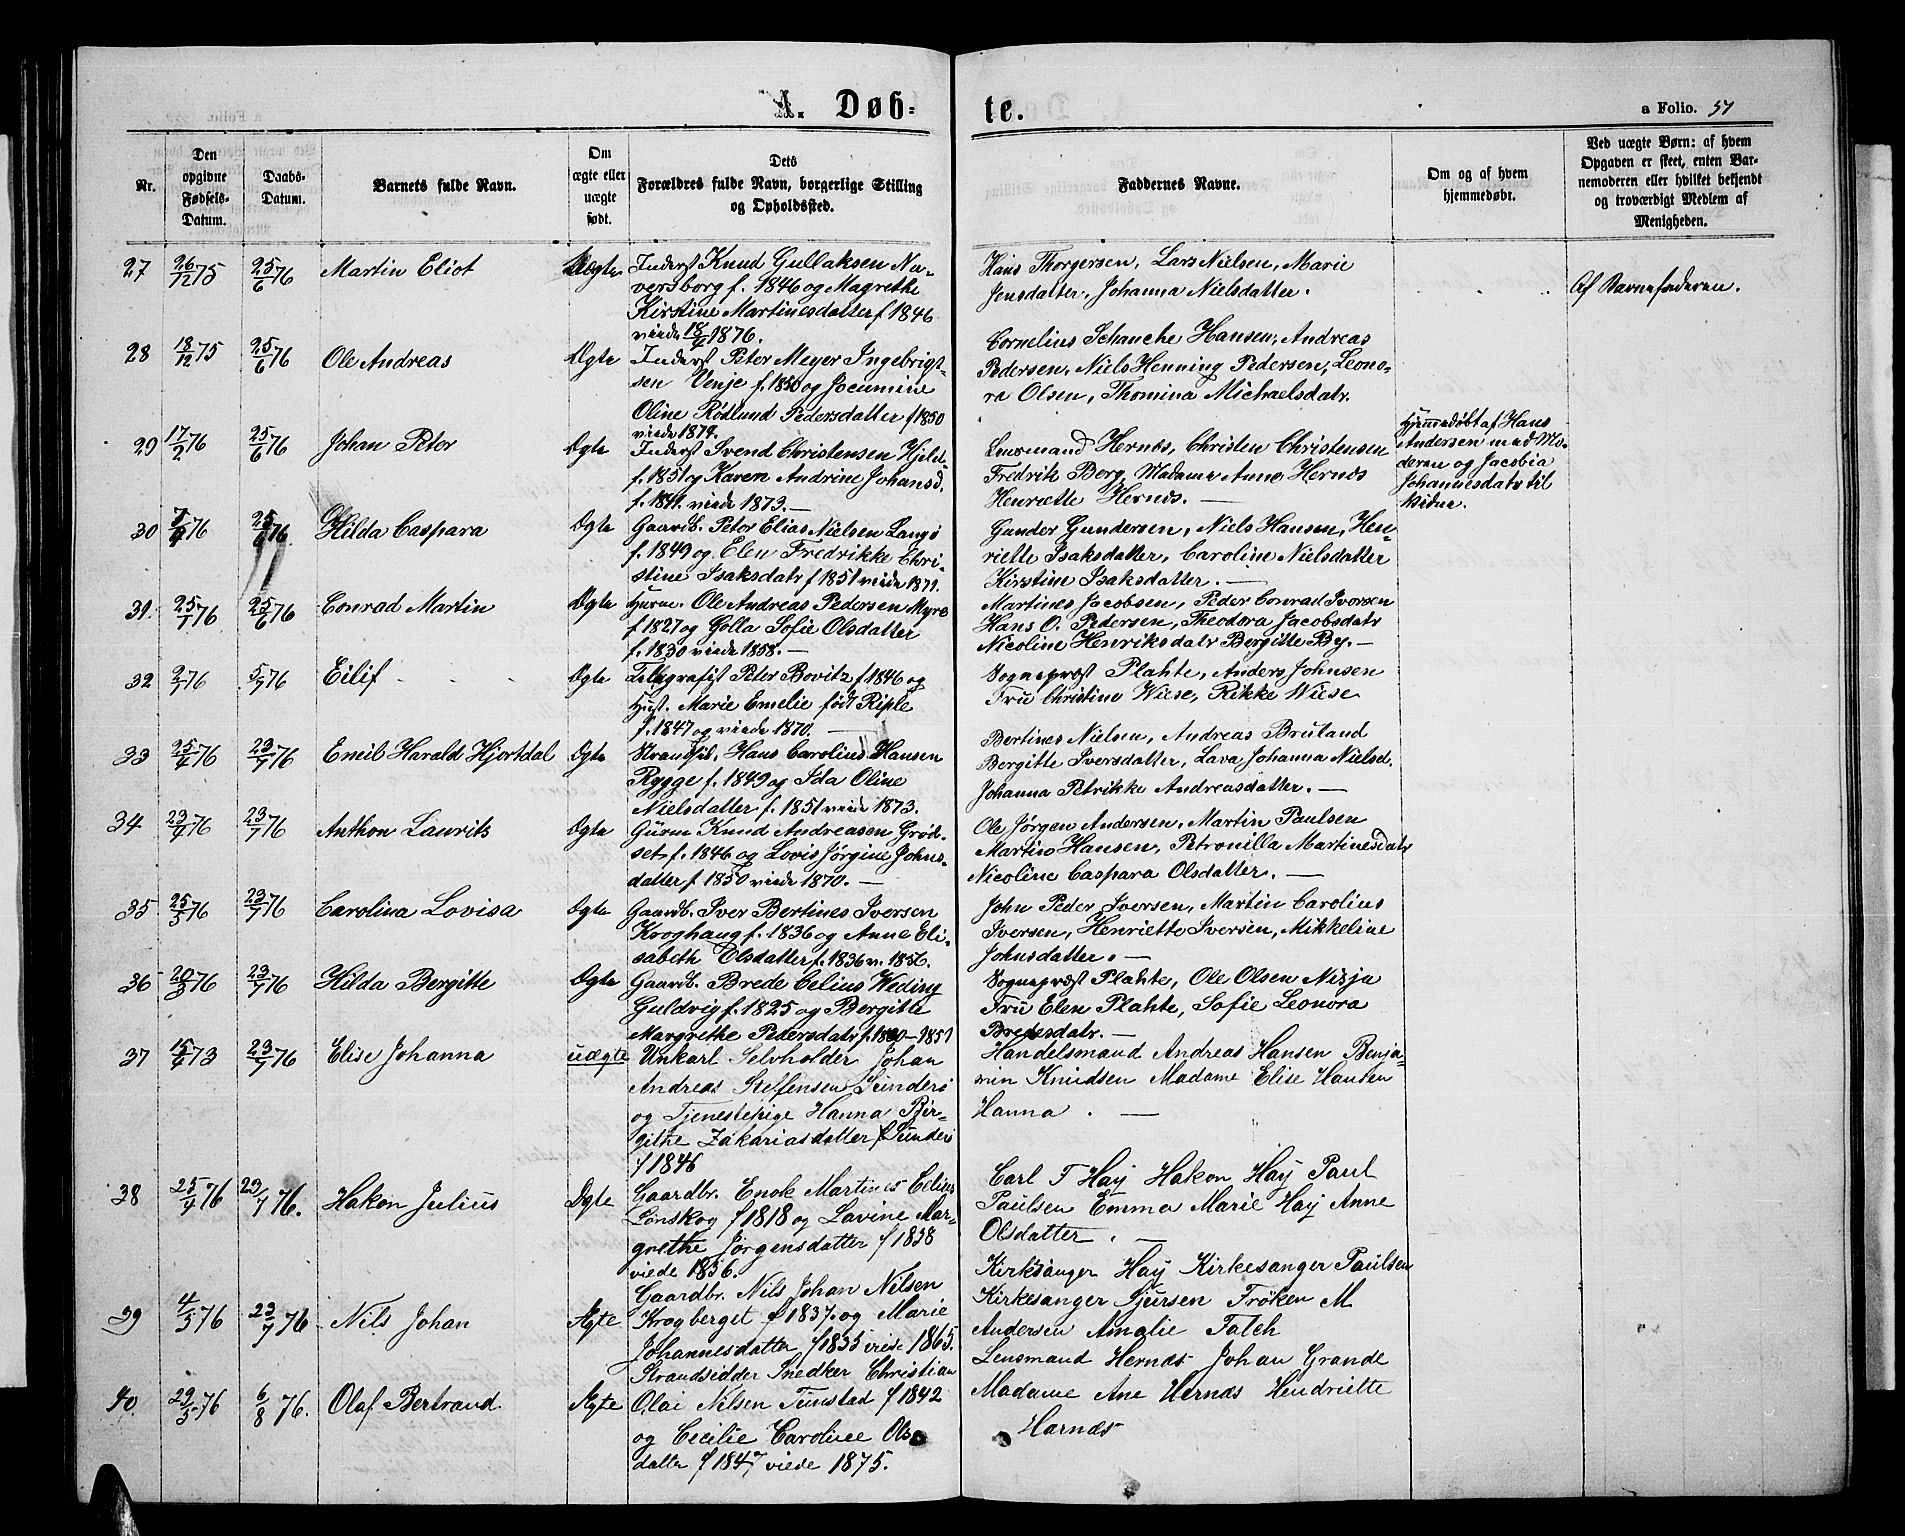 A. Døb-
te.
a Folio. 57
Nr.
Den opgivne Fødsels-Datum.
Daabs-Datum.
Barnets fulde Navn.
Om ægte eller uægte født.
Dets Forældres fulde Navn, borgerlige Stilling og Opholdssted.
Faddernes Navne.
Om og af hvem hjemmedøbt.
Ved uægte Børn: af hvem Opgaven er skeet, enten Barnemoderen eller hvilket bekjendt og troværdigt Medlem af Menigheden.
27 26/12 75 25/6 76 Martin Eliot Ægte
Inderst Knud Gullaksen Na-
versborg f. 1846 og Magrethe
Kirstine Martinesdatter f 1846
viede 18/6 1876.
Hans Thorgersen, Lars Nielsen, Marie
Jensdatter, Johanna Nielsdatter.
Af Barnefaderen.
28 18/12 75 25/6 76 Ole Andreas Ægte
Inderst Peter Meyer Ingebrigt-
sen Venje f. 1850 og Jocumine
Oline Rødlund Pedersdatter f 1850
viede 1874.
Cornelius Schanche Hansen, Andreas
Pedersen, Niels Henning Pedersen, Leono-
ra Olsen, Thomina Michaelsdatr.
29 17/2 76 25/6 76 Johan Peter Ægte
Inderst Svend Christensen Hjeld-
f. 1851 og Karen Andrine Johansd.
f. 1849. viede 1873. —
Lensmand Hernes, Christen Christensen
Fredrik Borg, Madame Anne Hernes
Henriette Hernes. —
Hjemmedøbt af Hans
Andersen med Mo-
deren og Jacobia
Johannesdatr til
Vidne.
30 76 25/6 76 Hilda Caspara Ægte
Gaardb. Peter Elias Nielsen Langø
f. 1849 og Elen Fredrikke Chri-
stine Isaksdatr f 1851 viede 1871.
Gunder Gundersen, Niels Hansen, Hen-
riette Isaksdatter, Caroline Nielsdatter
Kirstine Isaksdatter. —
31. 25/1 76 25/6 76 Conrad Martin Ægte
Huusm. Ole Andreas Pedersen Myre
f 1827 og Golla Sofie Olsdatter
f. 1830 viede 1858. —
Martines Jacobsen, Peder Conrad Iversen
Hans O. Pedersen, Theodora Jacobsdatr
Nicoline Henriksdatr Bergitte By. —
32 2/1 76 5/7 76 Eilif Ægte
Telegrafist Peter Bovitz f 1846 og
Hust. Marie Emelie født Riple
f. 1847 og viede 1870. —
Sogneprest Plahte, Anders Johnsen
Fru Christine Wiese, Rikke Wiese
33 25/4 76 23/7 76 Emil Harald Hjortdal Ægte
Strandsid. Hans Carolius Hansen
Rygge f. 1849 og Ida Oline
Nielsdatter f. 1851 viede 1873.
Bertines Nielsen, Andreas Bruland
Bergitte Iversdatter, Lava Johanna Nielsd.
Johanna Petrikke Andreasdatter. —
34 76 23/7 76 Anthon Laurits Ægte
Knud Andreasen Grød-
set f. 1846 og Lovis Jørgine Johns-
datter f 1850 viede 1870. —
Ole Jørgen Andersen, Martin Paulsen
Martin Hansen, Petronilla Martinesdatr
Nicoline Caspara Olsdatter. —
35 25/5 76 23/7 76 Carolina Lovisa Ægte
Gaardb. Iver Bertines Iversen
Kroghaug f. 1836 og Anne Eli-
sabeth Olsdatter f. 1836 v. 1856.
John Peder Iversen, Martin Carolius
Iversen, Henriette Iversen, Mikkeline
Johnsdatter. —
36 20/3 76 23/7 76 Hilda Bergitte Ægte
Gaardb. Brede Celius Weding
Guldvig f. 1825 og Bergitte
Margrethe Pedersdatr f. 1830 — 1851
Sogneprest Plahte, Ole Olsen Nisja
Fru Elen Plahte, Sofie Leonora
Bredesdatr. —
37 73 23/7 76 Elise Johanna uægte
Unkarl Selvholder Johan
Andreas Steffensen Sunderø
og Tjenestepige Hanna Bir-
githe Zakariasdatter Sunderø
f 1846
Handelsmand Andreas Hansen Benja-
min Knudsen Madame Elise Hansen
Hanna . —
38 25/4 76 23/7 76. Hakon Julius Ægte
Gaardbr. Enok Martines Celius
Lønskog f 1818 og Lavine Mar-
grethe Jørgensdatter f 1838
viede 1856.
Carl F Hay Hakon Hay Paul
Paulsen Emma Marie Hay Anne
Olsdatter . —
39 4/5 76 23/7 76 Nils Johan Ægte
Gaardbr. Nils Johan Nilsen
Krogberget f 1837. og Marie
Johannesdatter f 1835 viede 1865.
Kirksanger Hay Kirkesanger Paulsen
Kirkesanger Sjursen Frøken M
Andersen Amalie Falch
40. 29/5 76 6/8 76. Olaf Bertrand Ægte
Strandsidder Snedker Christian
Olai Nilsen Tunstad f 1842
og Cecilie Caroline Ols
datter f 1847 viede 1875.
Lensmand Hernes Johan Grande
Madame Ane Hernæs Hendriette
Harnæs